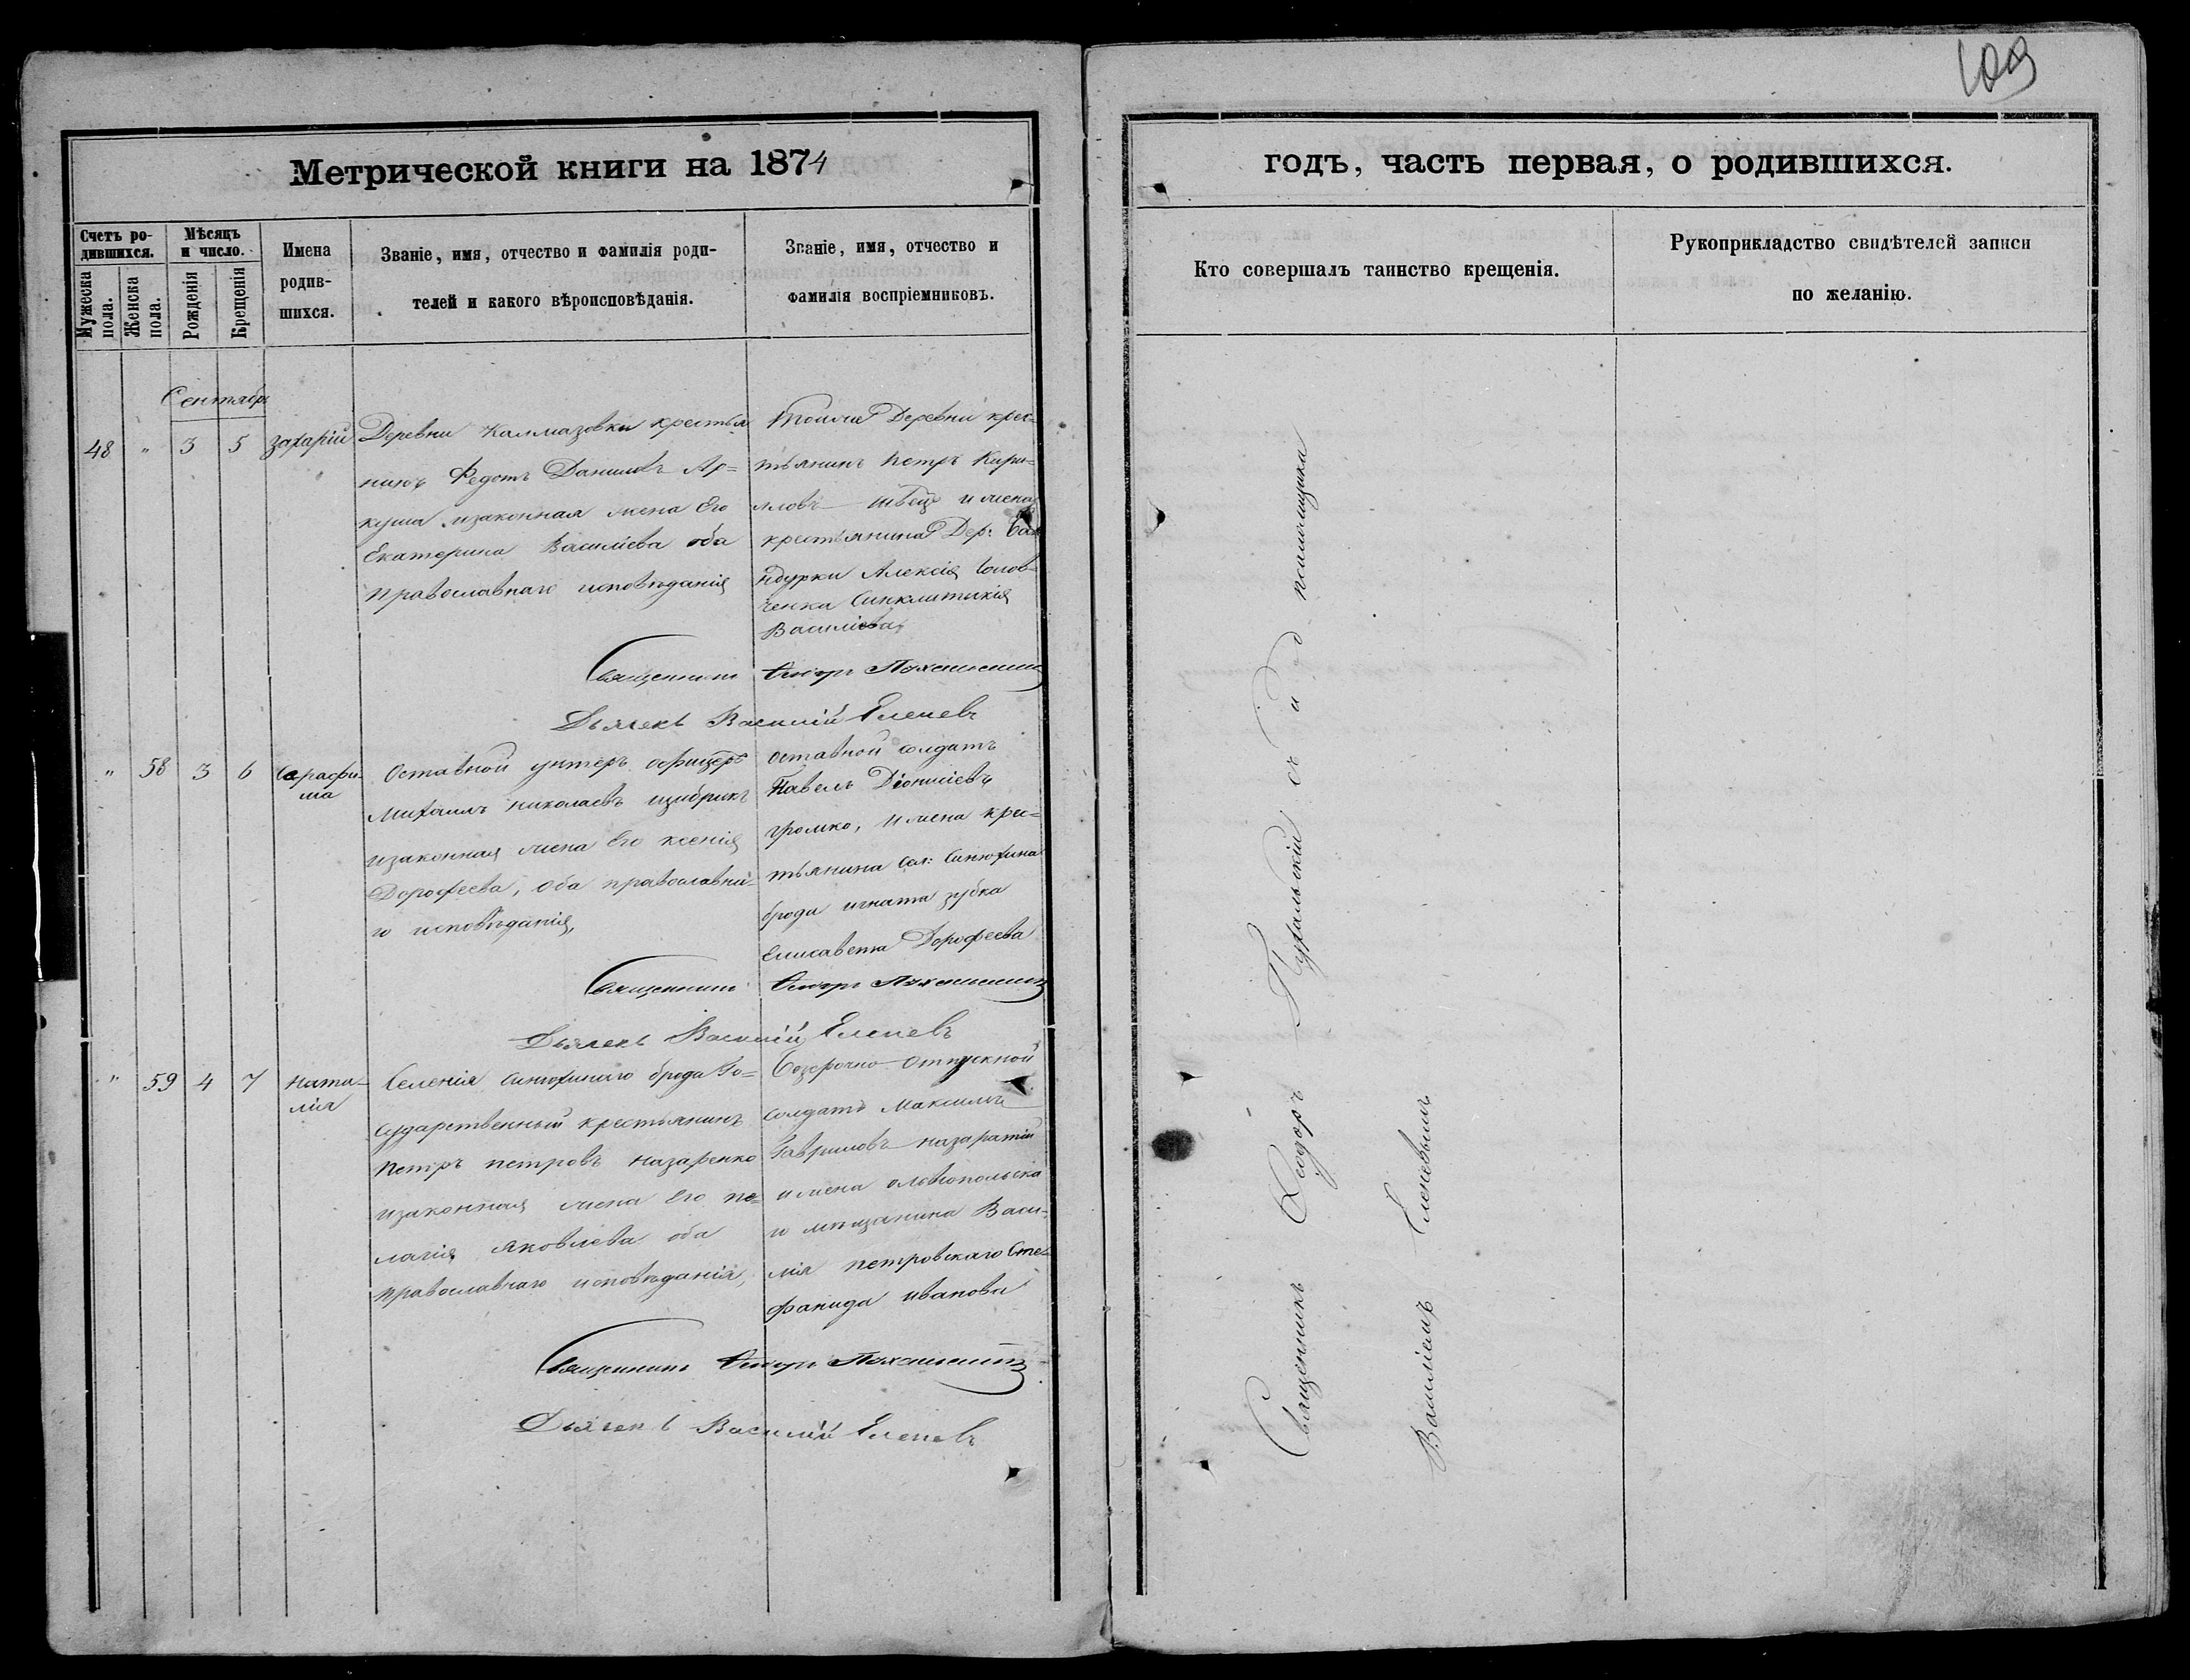 109
Метрической книги на 1874
годъ, часть первая, о родившихся.
Счетъ родившихся.
Мужеска пола.
Женска пола.
Мѣсяцъ и число.
Рожденія
Крещенія
Имена родив-
шихся.
Званіе, имя, отчество и фамилія роди-
телей и какого вѣроисповѣданія.
Званіе, имя, отчество и
фамилія воспріемниковъ.
Кто совершалъ таинство крещенія.
Рукоприкладство свидѣтелей записи
по желанію.
Сентябрь
48 " 3 5 Захарій
Деревни Калмазовки крестья
нинъ Федотъ Даниловъ Ар=
куша изаконная жена Его
Екатерина Василіева оба
православнаго исповѣданія
Тоила Деревни крес-
тьянинъ Петръ Кири-
ловъ Швецъ и жена
крестьянина Дер:
Алексія
ченка Синклитикія
Василіева
Священникъ Феодоръ Пухальскій
Дьячекъ Василій Еленевъ
" 58 3 6 Серафи-
ма
Оставной унтеръ офицеръ
Михаилъ Николаевъ
изаконная жена Его Ксенія
Дорофеева, оба православна-
го исповѣданія,
оставной солдатъ
Павелъ Діонисіевъ
громко, и жена кре=
тьянина Сел: Синюхина
брода игната зубка
Елисавета Дорофеева
Священникъ Феодоръ Пухальскій
Дьячекъ Василій Еленевъ
" 59 4 7 Ната-
лія
Селенія Синюхинаго брода Го=
сударственный крестьянинъ
Петръ петровъ назаренко
изаконная жена Его пе-
лагія Яковлева оба
православнаго исповѣданія,
Безсрочно-Отпускной
солдатъ Максимъ
Гавриловъ
и жена ольвіопольска
го мѣщанина Васи-
лія петровскаго Сте-
фанида иванова
Священникъ Феодоръ Пухальскій
Дьячекъ Василій Еленевъ
Священникъ Феодоръ Пухальскій съ и. д. псаломщика
Василіемъ Еленевымъ